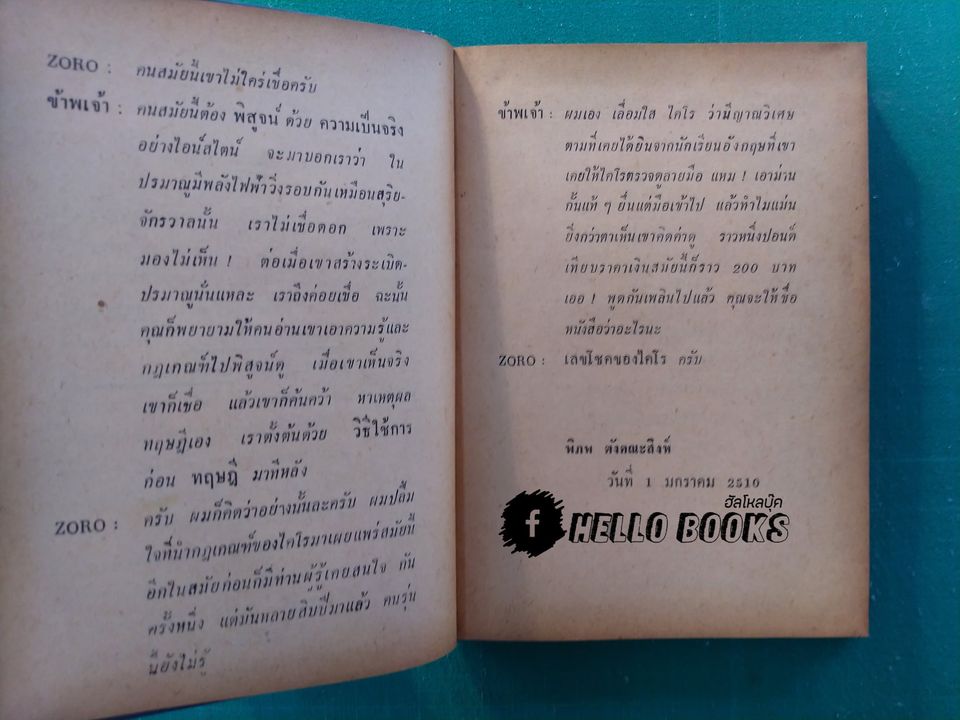 ZORO : คนสมัยนี้เขาไม่ใคร่เชื่อครับ
ข้าพเจ้า : คนสมัยนี้ต้อง พิสูจน์ ด้วย ความเป็นจริง
อย่างไอน์สไตน์ จะมาบอกเราว่า ใน
ปรมาณูมีพลังไฟฟ้าวิ่งรอบกันเหมือนสุริย-
จักรวาลนั้น เราไม่เชื่อดอก เพราะ
มองไม่เห็น ! ต่อเมื่อเขาสร้างระเบิด-
ปรมาณูนั่นแหละ เราถึงค่อยเชื่อ ฉะนั้น
คุณก็พยายามให้คนอ่านเขาเอาความรู้และ
กฎเกณฑ์ไปพิสูจน์ดู เมื่อเขาเห็นจริง
เขาก็เชื่อ แล้วเขาก็ค้นคว้า หาเหตุผล
ทฤษฎีเอง เราตั้งต้นด้วย วิธีใช้การ
ก่อน ทฤษฎี มาทีหลัง
ZORO : ครับ ผมก็คิดว่าอย่างนั้นละครับ ผมปลื้ม
ใจที่นำกฎเกณฑ์ของไคโรมาเผยแพร่สมัยนี้
อีกในสมัยก่อนก็มีท่านผู้รู้เคยสนใจ กัน
ครั้งหนึ่ง แต่มันหลายสิบปีมาแล้ว คนรุ่น
นี้ยังไม่รู้
ข้าพเจ้า : ผมเอง เลื่อมใส ไคโร ว่ามีญาณวิเศษ
ตามที่เคยได้ยินจากนักเรียนอังกฤษที่เขา
เคยให้ไคโรตรวจดูลายมือ แหม ! เอาม่าน
กั้นแท้ ๆ ยื่นแต่มือเข้าไป แล้วทำไมแม่น
ยิ่งกว่าตาเห็นเขาคิดค่าดู ราวหนึ่งปอนด์
เทียบราคาเงินสมัยนี้ก็ราว 200 บาท
เออ ! พูดกันเพลินไปแล้ว คุณจะให้ชื่อ
หนังสือว่าอะไรนะ
ZORO : เลขโชคของไคโร ครับ
พิภพ ตังคณะสิงห์
วันที่ 1 มกราคม 2510
ฮัลโหลบุ๊ค
f HELLO BOOKS